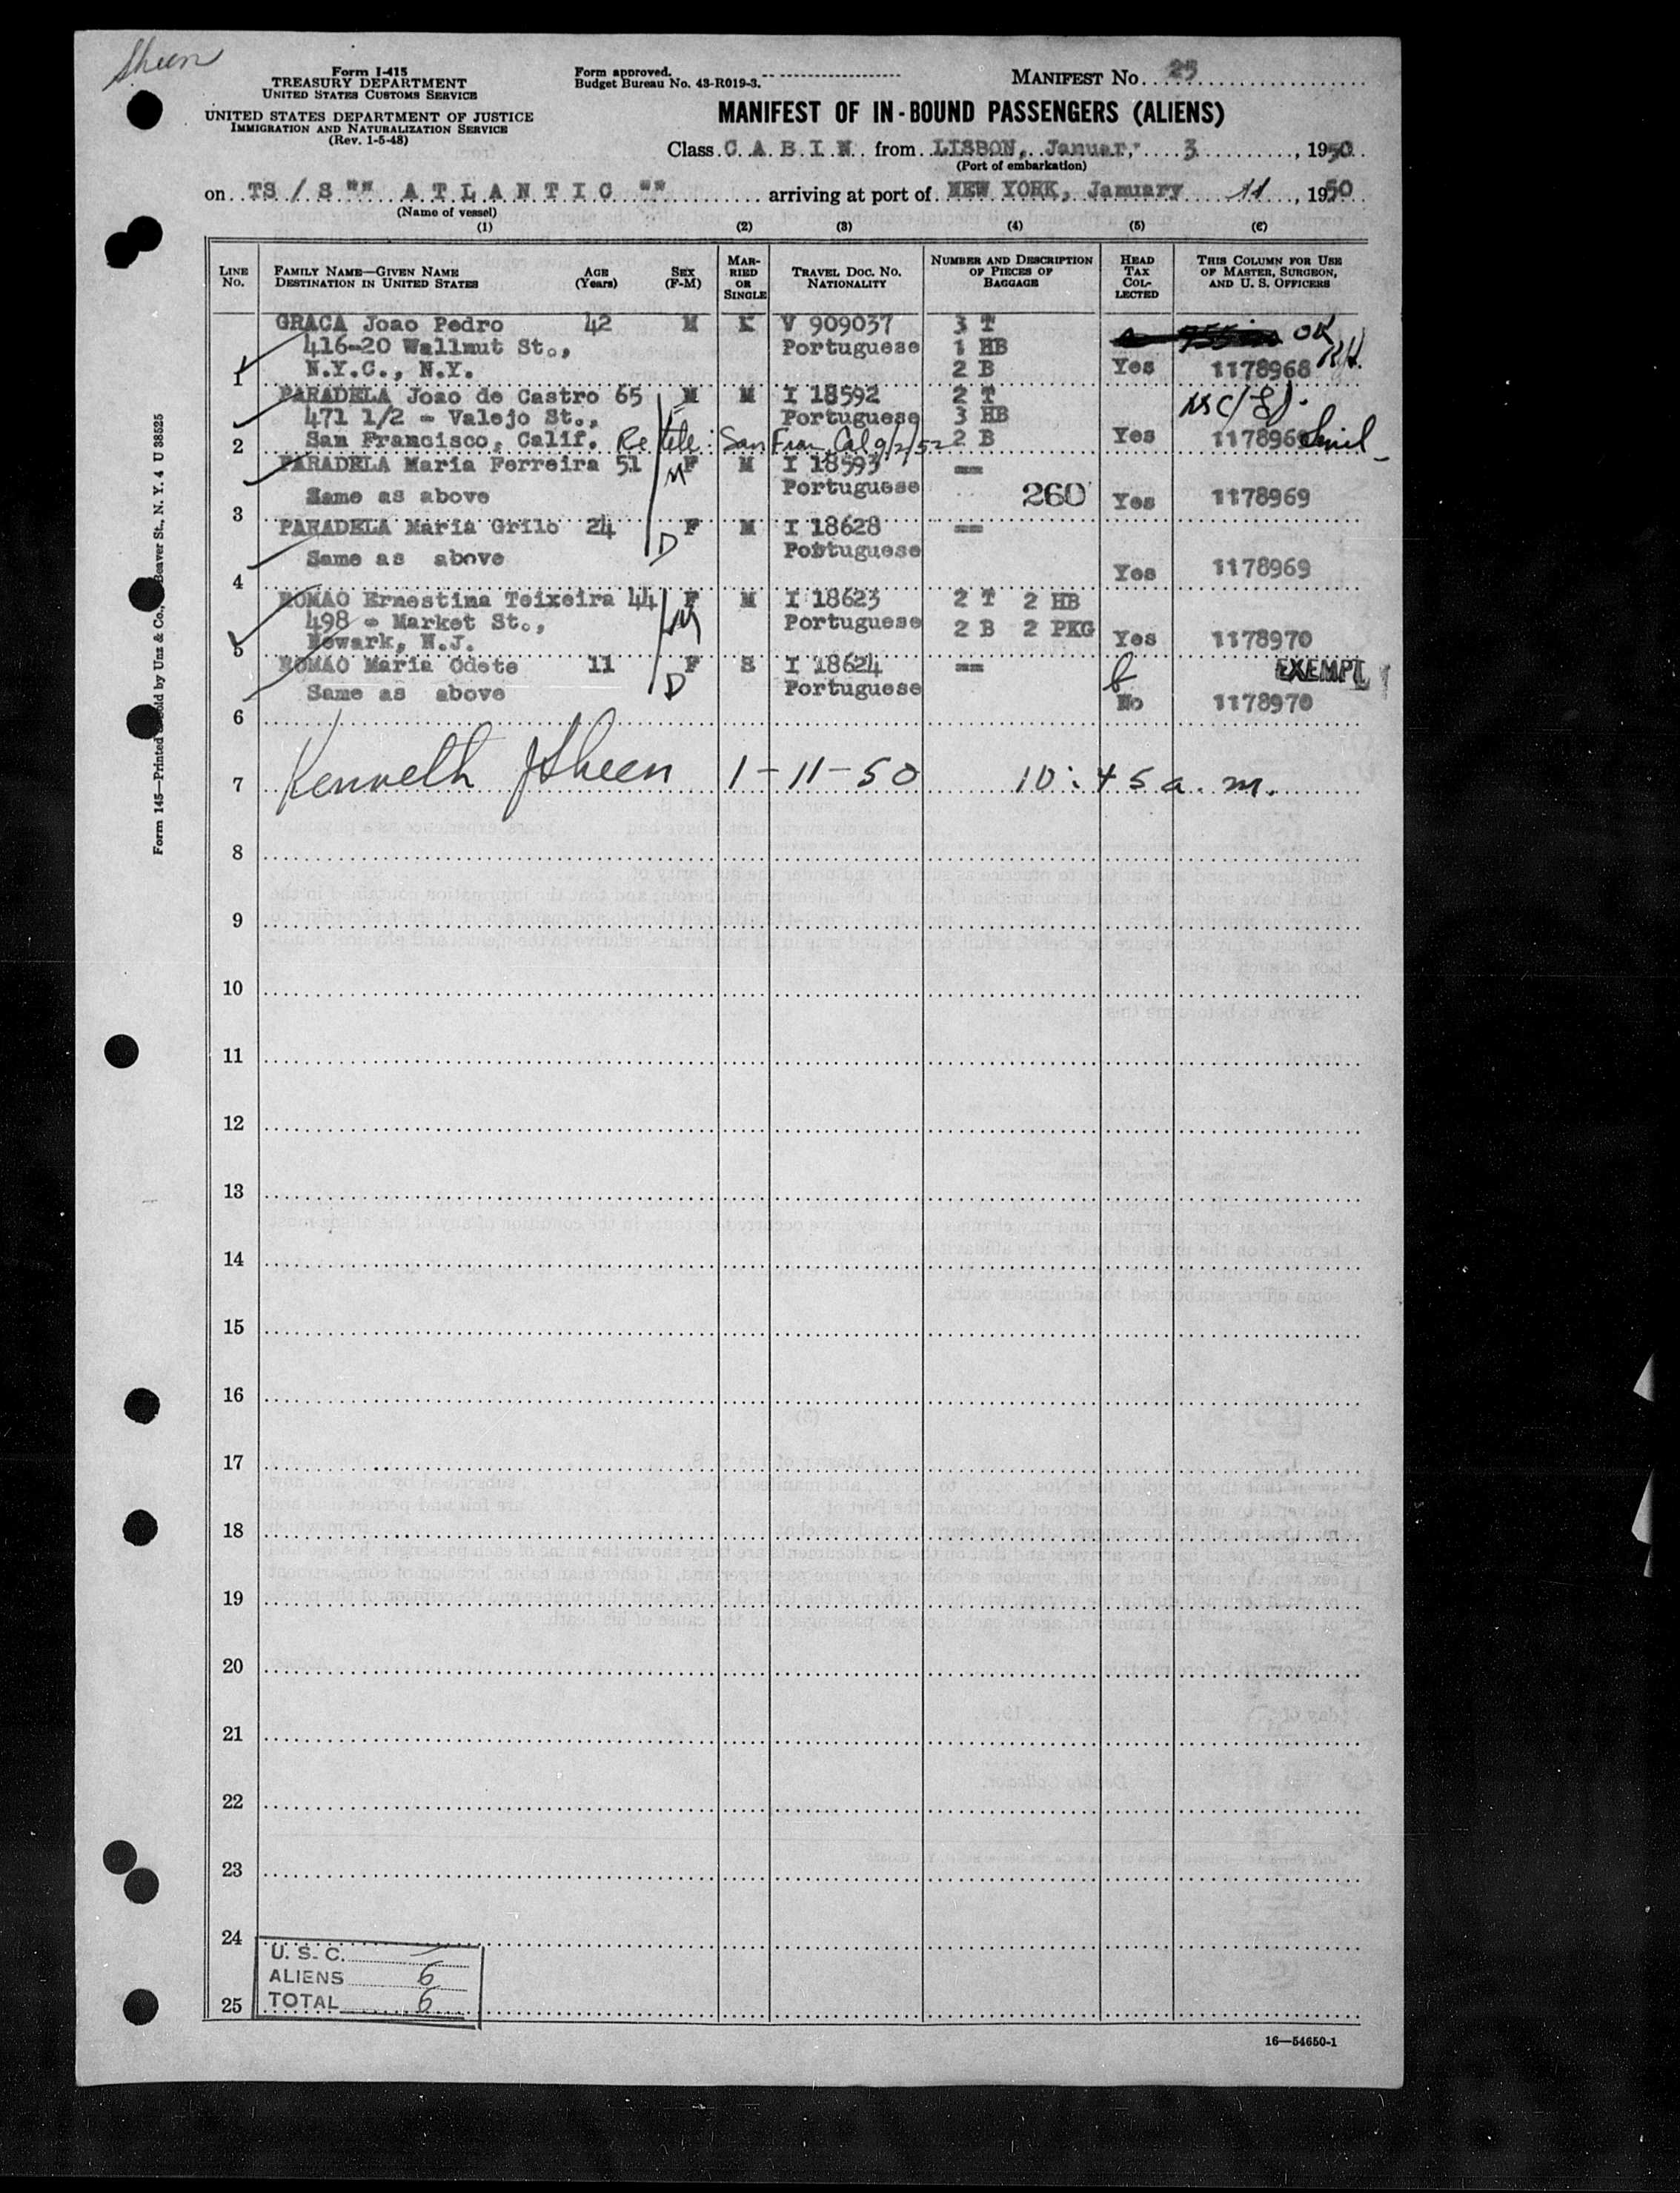 Sheen
Form I-415
TREASURY DEPARTMENT
UNITED STATES CUSTOMS SERVICE
UNITED STATES DEPARTMENT OF JUSTICE
IMMIGRATION AND NATURALIZATION SERVICE
(Rev. 1-5-48)
Form approved.
Budget Bureau No. 43-R019-3.
MANIFEST NO. 25
MANIFEST OF IN-BOUND PASSENGERS (ALIENS)
Class C A B I N from LISBON, Januar, 3, 1950
(Port of embarkation)
on TS / S "" A T L A N T I C "" arriving at port of NEW YORK, January 11, 1950
(Name of vessel)
(1) (2) (3) (4) (5) (6)
LINE NO. FAMILY NAME—GIVEN NAME DESTINATION IN UNITED STATES AGE (Years) SEX (F-M) MARRIED OR SINGLE TRAVEL DOC. NO. NATIONALITY NUMBER AND DESCRIPTION OF PIECES OF BAGGAGE HEAD TAX COLLECTED THIS COLUMN FOR USE OF MASTER, SURGEON, AND U. S. OFFICERS
GRACA Joao Pedro 42 M V 909037 3 T OK
416-20 Wallnut St., Portuguese 1 HB
1 N.Y.C., N.Y. 2 B Yes 1178968
PARADELA Joao de Castro 65 M M I 18592 2 T
471 1/2 - Valejo St., Portuguese 3 HB
2 San Francisco, Calif. Re tele: San Fran Cal 9/2/52 2 B Yes 1178969
PARADELA Maria Ferreira 51 F M I 18593 --
M Portuguese
3 Same as above 260 Yes 1178969
PARADELA Maria Grilo 24 F M I 18628 --
D Portuguese
4 Same as above Yes 1178969
ROMAO Ernestina Teixeira 44 F M I 18623 2 T 2 HB
498 - Market St., M Portuguese 2 B 2 PKG
5 Newark, N.J. Yes 1178970
ROMAO Maria Odete 11 F S I 18624 -- EXEMPT
Same as above D Portuguese
6 No 1178970
7 Kenneth J Sheen 1-11-50 10:45 a.m.
8
9
10
11
12
13
14
15
16
17
18
19
20
21
22
23
24
U. S. C.
ALIENS 6
25 TOTAL 6
16—54650-1